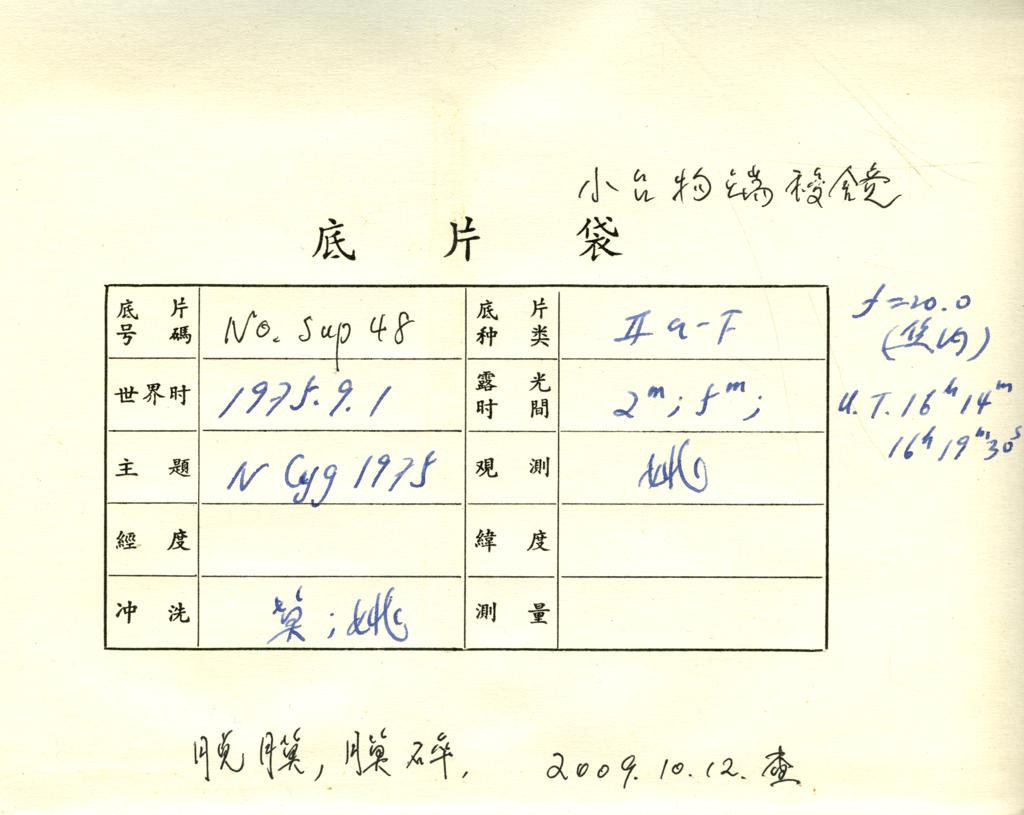 小台物端棱镜
底片袋
底片号碼 No. Sup 48 底片种类 IIa-F
f=20.0
世界时 1975.9.1 露光时間 2ᵐ; 5ᵐ;
U.T. 16ʰ 14ᵐ
16ʰ 19ᵐ 30ˢ
主題 N Cyg 1975 观測 姚
經度 緯度
冲洗 ; 姚 測量
脱膜, 膜碎. 2009.10.12. 查